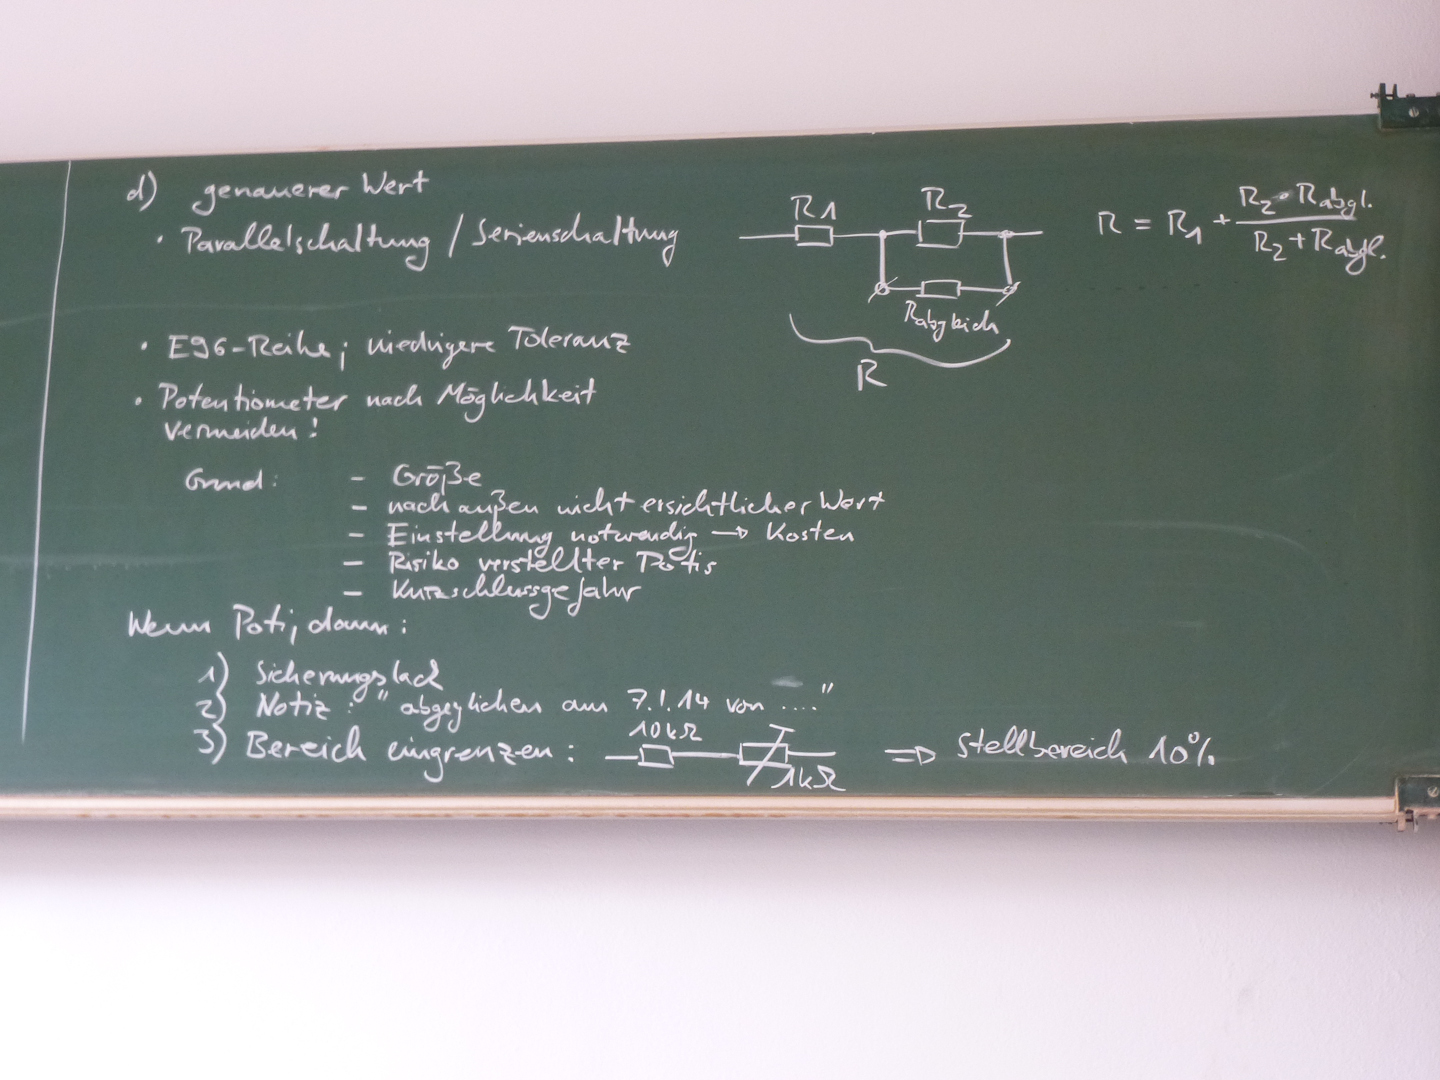 d) genauerer Wert
· Parallelschaltung / Serienschaltung
R1
R2
Rabgleich
R
R = R1 + R2 · Rabgl. / R2 + Rabgl.
· E96-Reihe; niedrigere Toleranz
· Potentiometer nach Möglichkeit
vermeiden!
Grund: – Größe
– nach außen nicht ersichtlicher Wert
– Einstellung notwendig → Kosten
– Risiko verstellter Potis
– Kurzschlussgefahr
Wenn Poti, dann:
1) Sicherungslack
2) Notiz: "abgeglichen am 7.1.14 von ...."
3) Bereich eingrenzen: 10kΩ 1kΩ ⇒ Stellbereich 10%